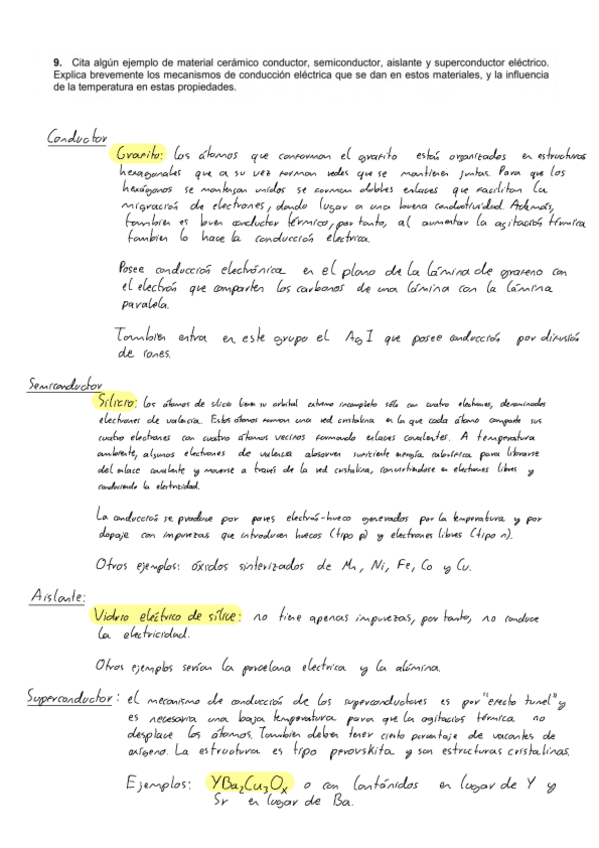 9. Cita algún ejemplo de material cerámico conductor, semiconductor, aislante y superconductor eléctrico.
Explica brevemente los mecanismos de conducción eléctrica que se dan en estos materiales, y la influencia
de la temperatura en estas propiedades.
Conductor
Grafito: Los átomos que conforman el grafito están organizados en estructuras
hexagonales que a su vez forman redes que se mantienen juntas. Para que los
hexágonos se mantengan unidos se forman dobles enlaces que facilitan la
migración de electrones, dando lugar a una buena conductividad. Además,
también es buen conductor térmico, por tanto, al aumentar la agitación térmica
también lo hace la conducción eléctrica.
Posee conducción electrónica en el plano de la lámina de grafeno con
el electrón que comparten los carbonos de una lámina con la lámina
paralela.
También entra en este grupo el AgI que posee conducción por difusión
de iones.
Semiconductor
Silicio: Los átomos de silicio tienen su orbital externo incompleto sólo con cuatro electrones, denominados
electrones de valencia. Estos átomos forman una red cristalina en la que cada átomo comparte sus
cuatro electrones con cuatro átomos vecinos formando enlaces covalentes. A temperatura
ambiente, algunos electrones de valencia absorven suficiente energía calorífica para librarse
del enlace covalente y moverse a través de la red cristalina, convirtiéndose en electrones libres y
conduciendo la electricidad.
La conducción se produce por pares electrón-hueco generados por la temperatura y por
dopaje con impurezas que introducen huecos (tipo p) y electrones libres (tipo n).
Otros ejemplos: óxidos sinterizados de Mn, Ni, Fe, Co y Cu.
Aislante:
Vidrio eléctrico de sílice: no tiene apenas impurezas, por tanto, no conduce
la electricidad.
Otros ejemplos serían la porcelana electrica y la alúmina.
Superconductor: el mecanismo de conducción de los superconductores es por "efecto tunel" y
es necesaria una baja temperatura para que la agitación térmica no
desplace los átomos. También deben tener cierto porcentaje de vacantes de
oxígeno. La estructura es tipo perovskita y son estructuras cristalinas.
Ejemplos: YBa₂Cu₃Oₓ o con lantánidos en lugar de Y y
Sr en lugar de Ba.